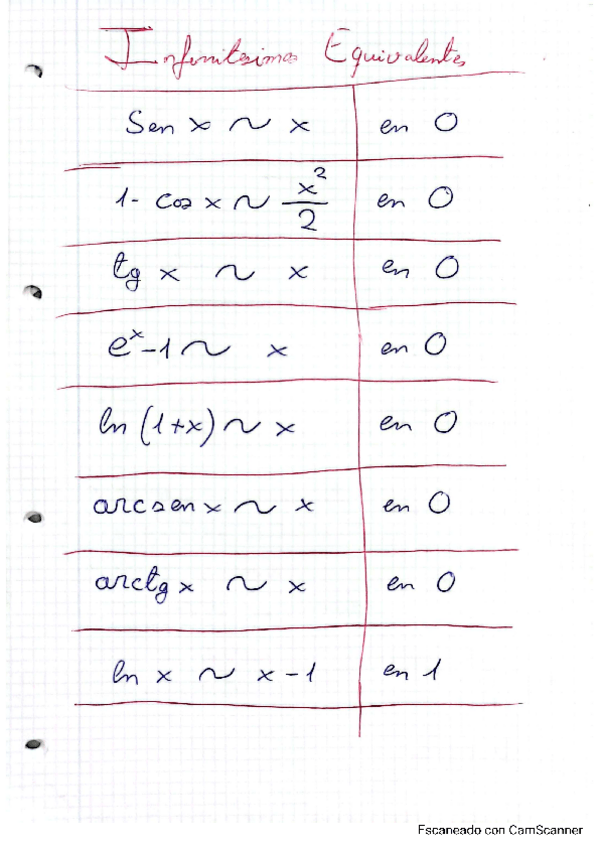 Infinitésimos Equivalentes
Sen x ~ x en 0
1 - cos x ~ x²/2 en 0
tg x ~ x en 0
eˣ - 1 ~ x en 0
ln (1+x) ~ x en 0
arcsen x ~ x en 0
arctg x ~ x en 0
ln x ~ x - 1 en 1
Escaneado con CamScanner